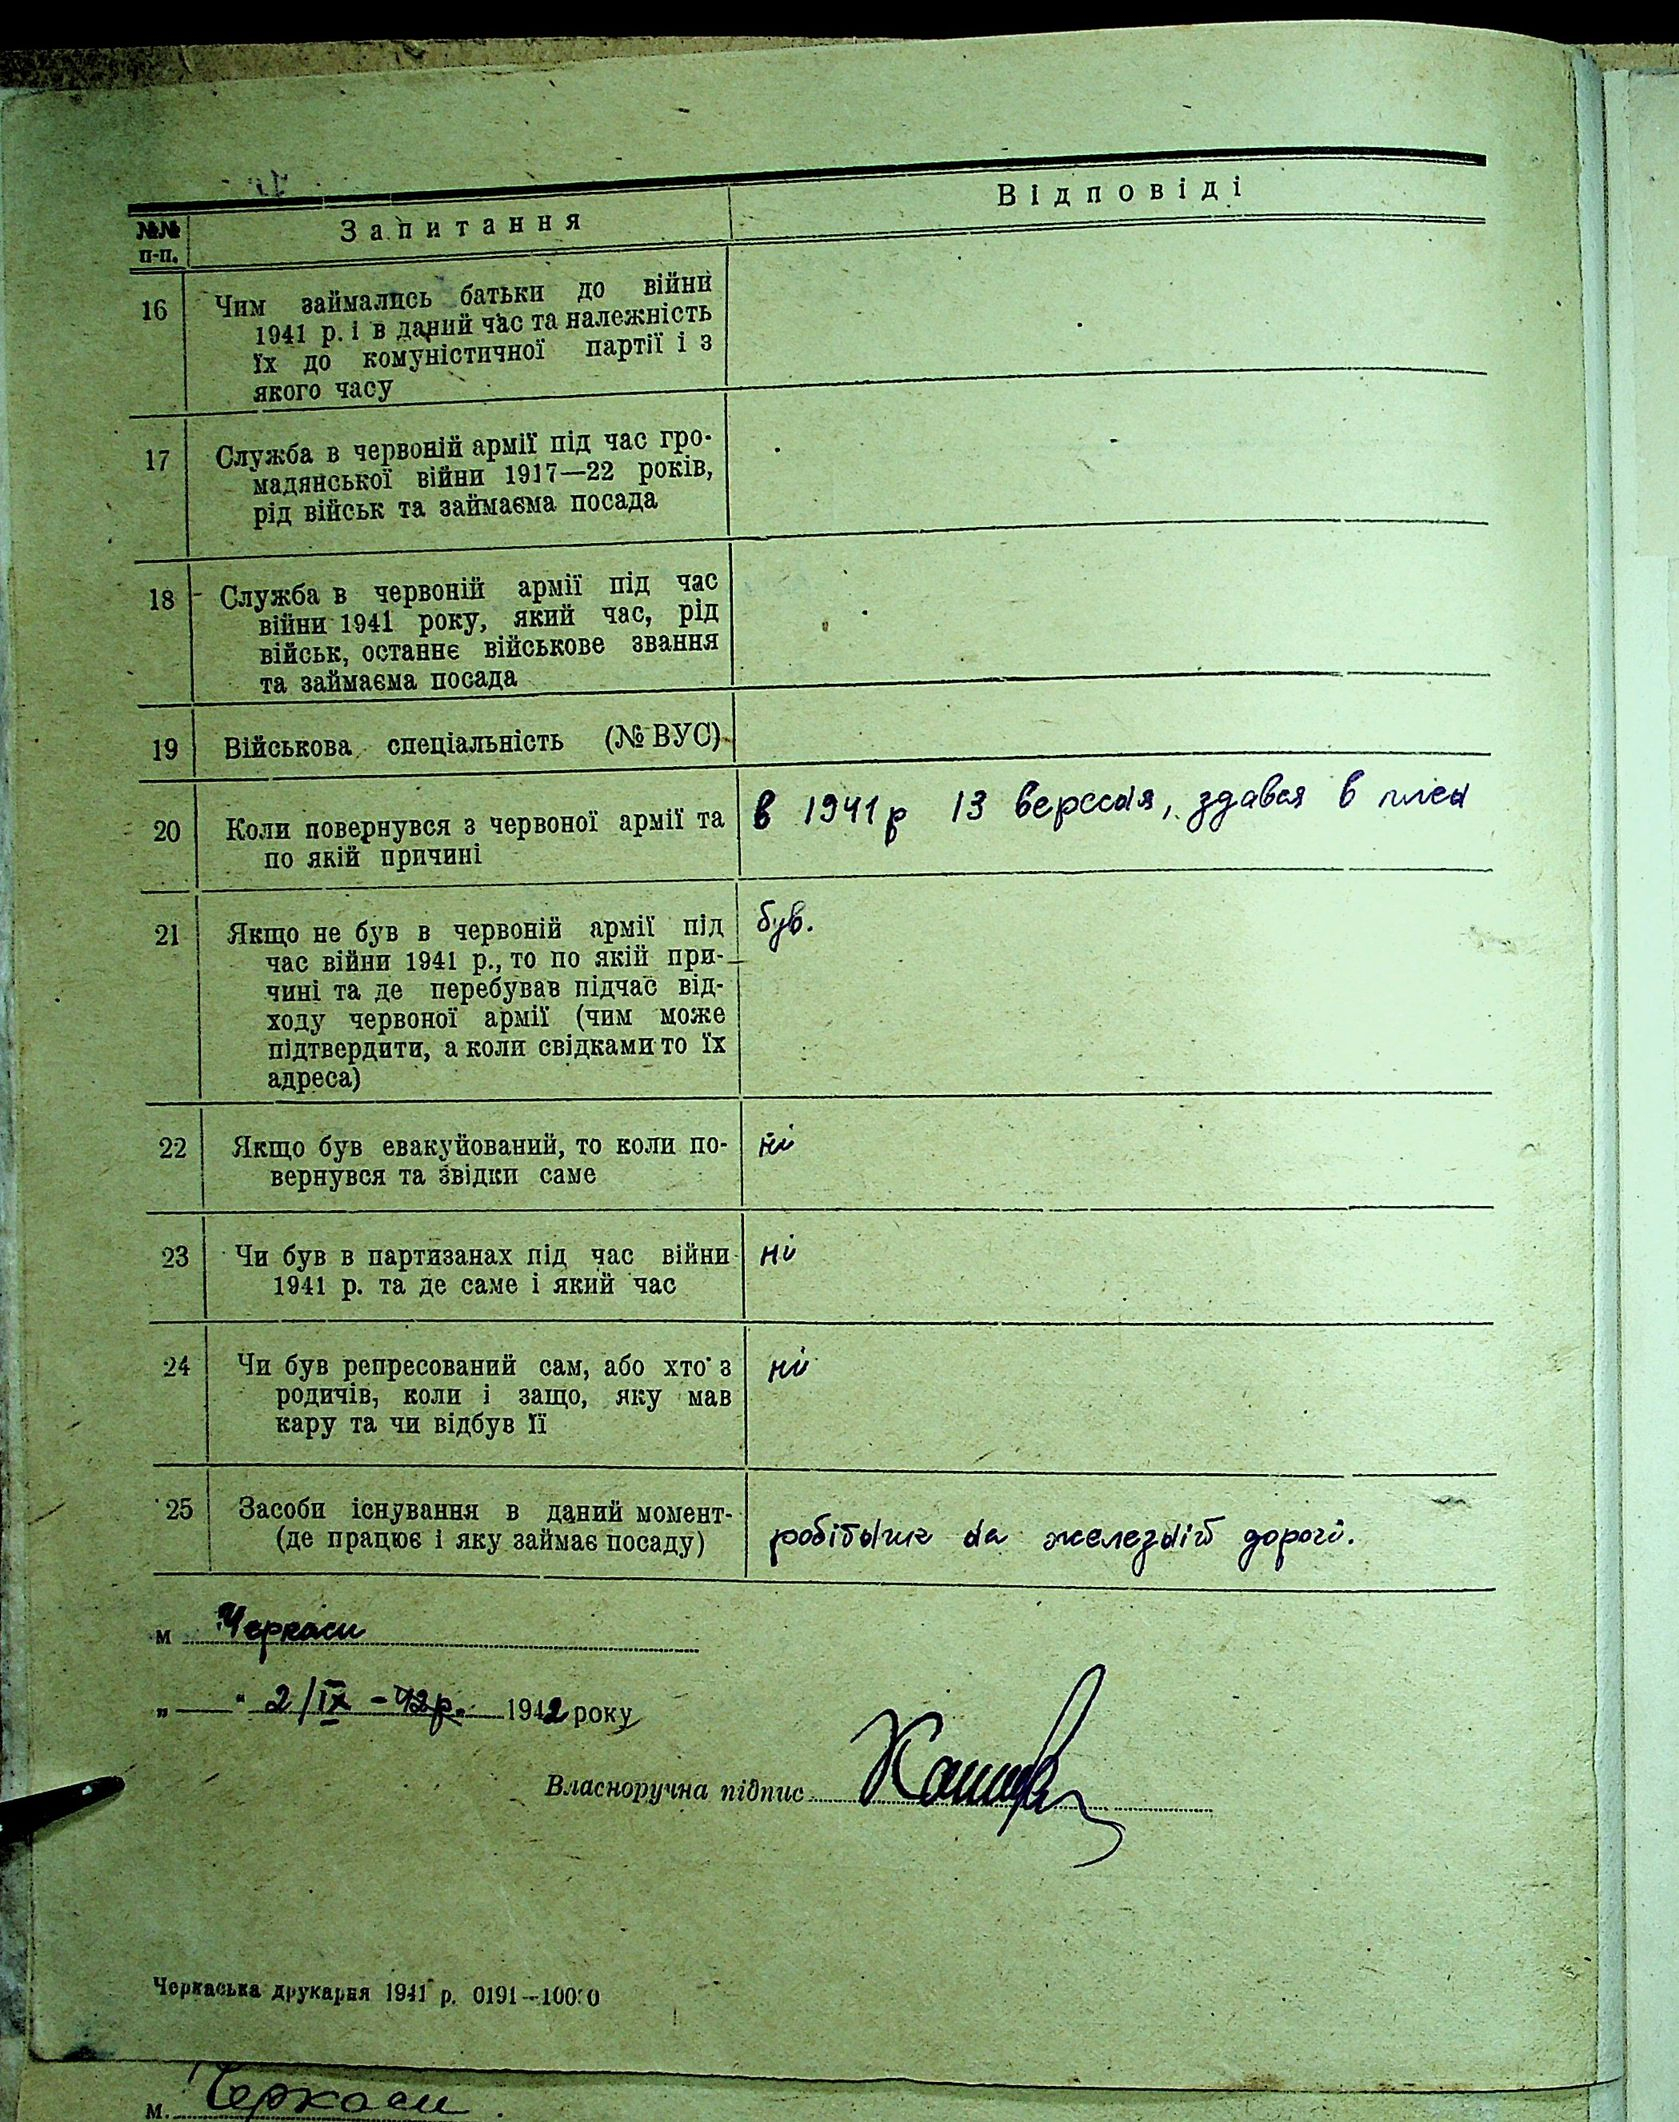 №№ п-п.
Запитання
Відповіді
16
Чим займались батьки до війни
1941 р. і в даний час та належність
їх до комуністичної партії і з
якого часу
17
Служба в червоній армії під час гро-
мадянської війни 1917—22 років,
рід військ та займаєма посада
18
Служба в червоній армії під час
війни 1941 року, який час, рід
військ, останнє військове звання
та займаєма посада
19
Військова спеціальність (№ ВУС)
20
Коли повернувся з червоної армії та
по якій причині
в 1941 р 13 вересня, здався в плен
21
Якщо не був в червоній армії під
час війни 1941 р., то по якій при-
чині та де перебував підчас від-
ходу червоної армії (чим може
підтвердити, а коли свідками то їх
адреса)
був.
22
Якщо був евакуйований, то коли по-
вернувся та звідки саме
ні
23
Чи був в партизанах під час війни
1941 р. та де саме і який час
ні
24
Чи був репресований сам, або хто з
родичів, коли і защо, яку мав
кару та чи відбув її
ні
25
Засоби існування в даний момент
(де працює і яку займає посаду)
робітник на железній дорогі.
м Черкаси
„ — " 2/IX - 42 р. 1942 року
Власноручна підпис
Черкаська друкарня 1941 р. 0191—10000
м. Черкаси